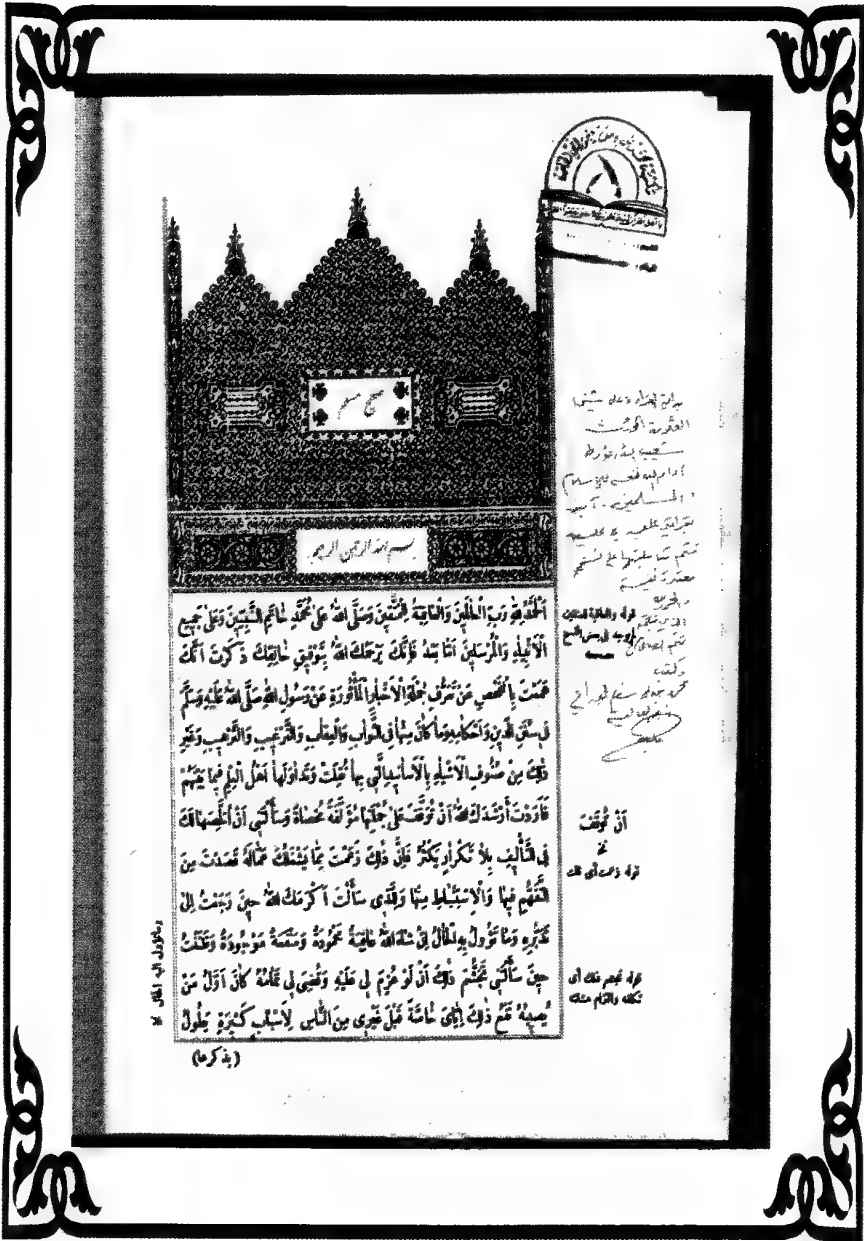 صحيح مسلم
بسم الله الرحمن الرحيم
اَلْحَمْدُ لِلّٰهِ رَبِّ الْعَالَمِينَ وَالْعَاقِبَةُ لِلْمُتَّقِينَ وَصَلَّى اللّٰهُ عَلَى مُحَمَّدٍ خَاتَمِ النَّبِيِّينَ وَعَلَى جَمِيعِ
الْاَنْبِيَاءِ وَالْمُرْسَلِينَ اَمَّا بَعْدُ فَاِنَّكَ يَرْحَمُكَ اللّٰهُ بِتَوْفِيقِ خَالِقِكَ ذَكَرْتَ اَنَّكَ
هَمَمْتَ بِالْفَحْصِ عَنْ تَعَرُّفِ جُمْلَةِ الْاَخْبَارِ الْمَأْثُورَةِ عَنْ رَسُولِ اللّٰهِ صَلَّى اللّٰهُ عَلَيْهِ وَسَلَّمَ
فِي سُنَنِ الدِّينِ وَاَحْكَامِهِ وَمَا كَانَ مِنْهَا فِي الثَّوَابِ وَالْعِقَابِ وَالتَّرْغِيبِ وَالتَّرْهِيبِ وَغَيْرِ
ذٰلِكَ مِنْ صُنُوفِ الْاَشْيَاءِ بِالْاَسَانِيدِ الَّتِي بِهَا نُقِلَتْ وَتَدَاوَلَهَا اَهْلُ الْعِلْمِ فِيمَا بَيْنَهُمْ
فَاَرَدْتَ اَرْشَدَكَ اللّٰهُ اَنْ تُوَقَّفَ عَلَى جُمْلَتِهَا مُؤَلَّفَةً مُحْصَاةً وَسَأَلْتَنِي اَنْ اُلَخِّصَهَا لَكَ
فِي التَّأْلِيفِ بِلَا تَكْرَارٍ يَكْثُرُ فَاِنَّ ذٰلِكَ زَعَمْتَ مِمَّا يَشْغَلُكَ عَمَّا لَهُ قَصَدْتَ مِنَ
التَّفَهُّمِ فِيهَا وَالْاِسْتِنْبَاطِ مِنْهَا وَلِلَّذِي سَأَلْتَ اَكْرَمَكَ اللّٰهُ حِينَ رَجَعْتُ اِلَى
تَدَبُّرِهِ وَمَا تَؤُولُ بِهِ الْحَالُ اِنْ شَاءَ اللّٰهُ عَاقِبَةٌ مَحْمُودَةٌ وَمَنْفَعَةٌ مَوْجُودَةٌ وَظَنَنْتُ
حِينَ سَأَلْتَنِي تَجَشُّمَ ذٰلِكَ اَنْ لَوْ عُزِمَ لِي عَلَيْهِ وَقُضِيَ لِي تَمَامُهُ كَانَ اَوَّلُ مَنْ
يُصِيبُهُ نَفْعُ ذٰلِكَ اِيَّايَ خَاصَّةً قَبْلَ غَيْرِي مِنَ النَّاسِ لِاَسْبَابٍ كَثِيرَةٍ يَطُولُ
(بذكرها)
قوله والعاقبة للمتقين
اَنْ تُوقَفَ
نخ
قوله زعمت أي قلت
قوله تجشم ذلك أي
تكلفه والتزام مشقته
وما تؤول اليه الحال نخ